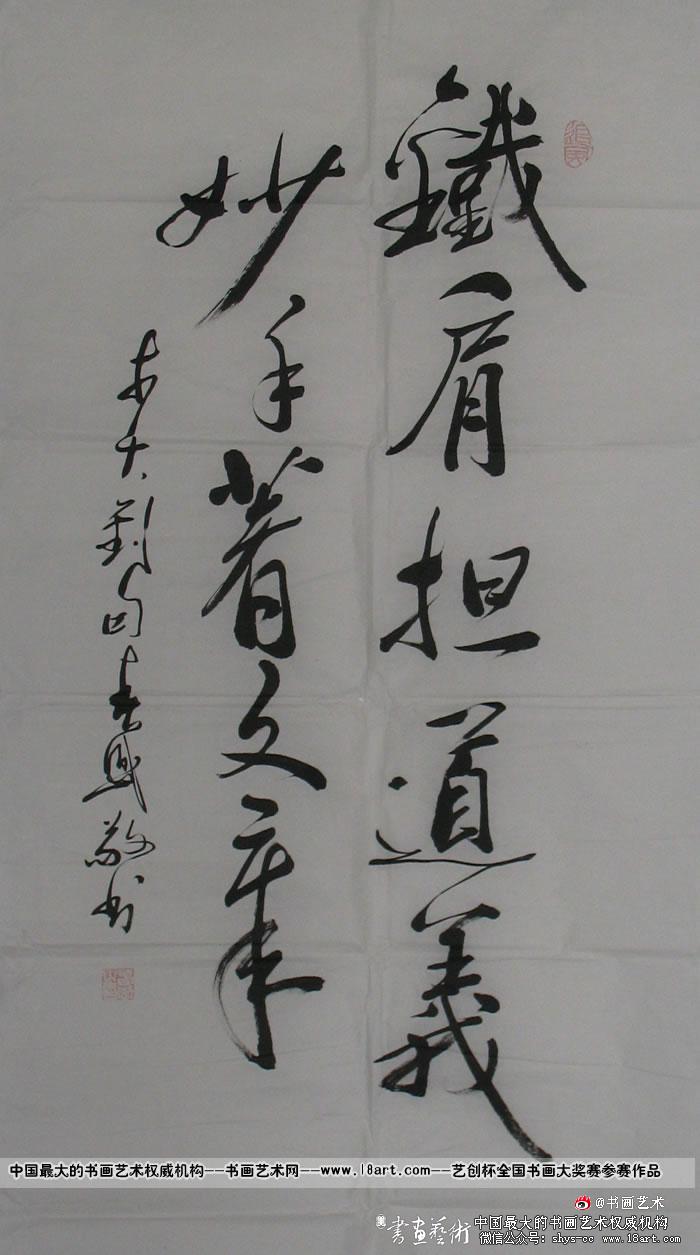 鐵肩担道義
妙手著文章
敬书
中国最大的书画艺术权威机构——书画艺术网——www.18art.com——艺创杯全国书画大奖赛参赛作品
@书画艺术
書畫藝術 中国最大的书画艺术权威机构
微信公众号：shys-cc www.18art.com